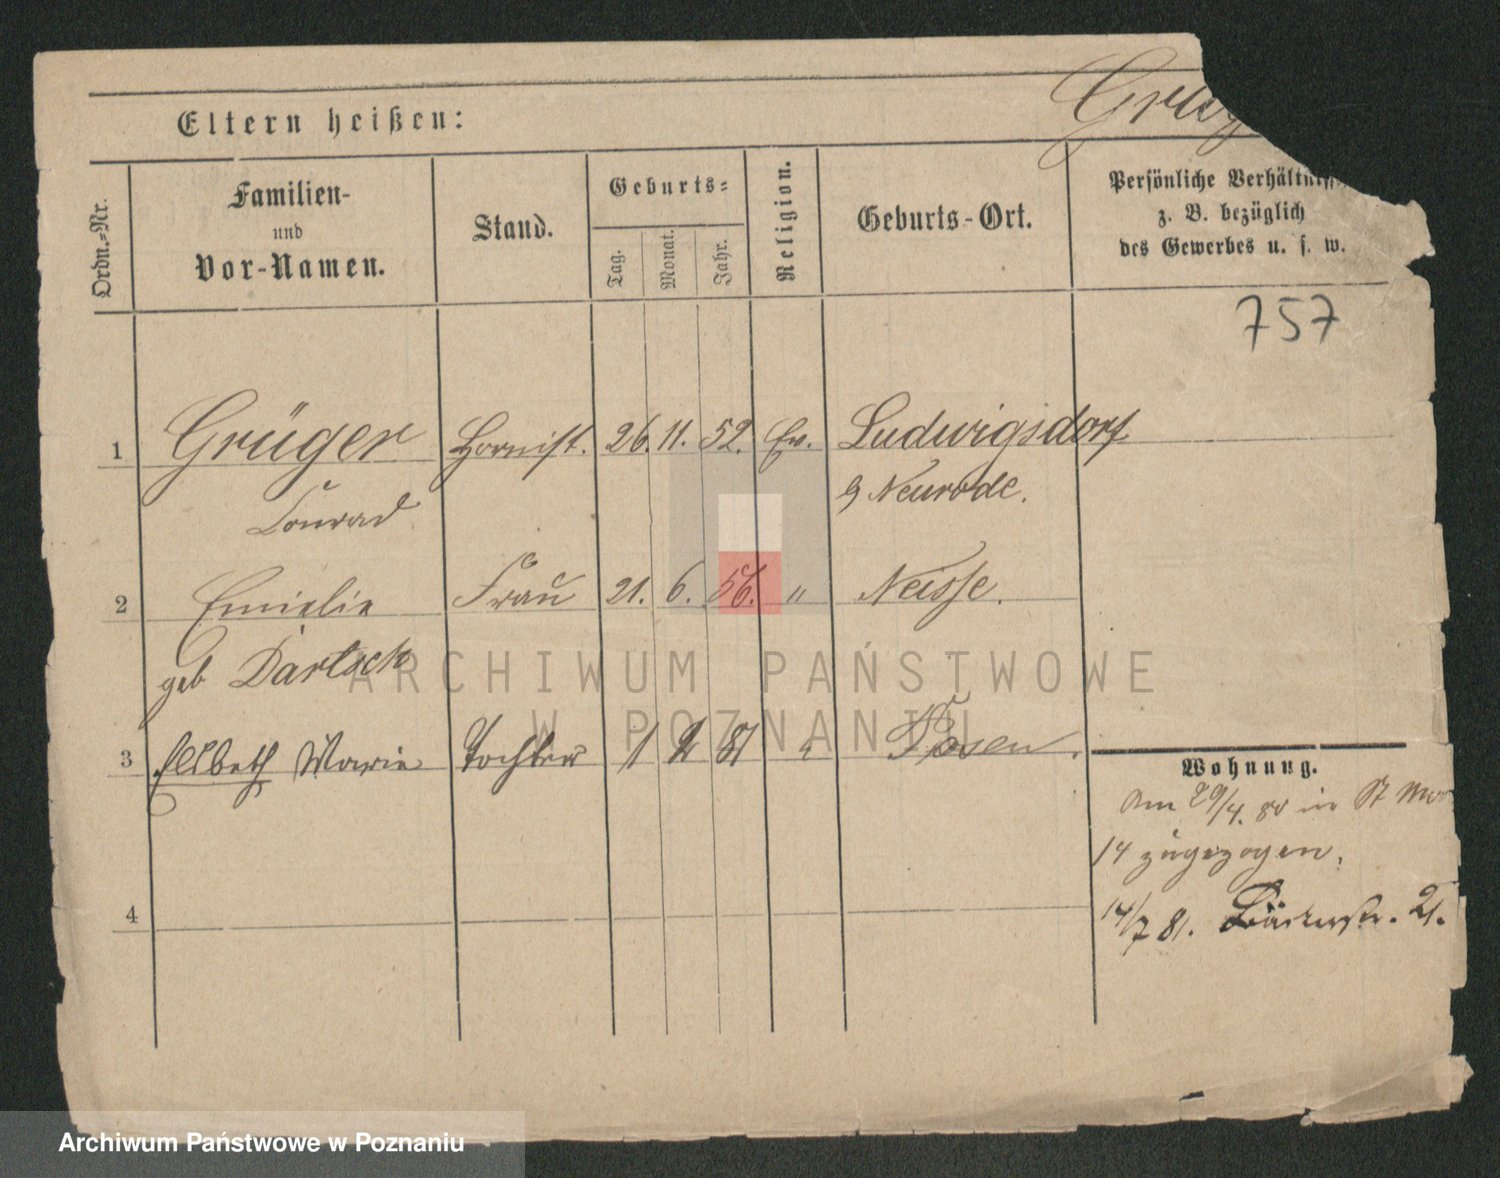 Eltern heißen:
Grüg
Ordn.-Nr.
Familien-
und
Vor-Namen.
Stand.
Geburts-
Tag.
Monat.
Jahr.
Religion.
Geburts-Ort.
Persönliche Verhältniss
z. B. bezüglich
des Gewerbes u. s. w.
757
1 Grüger Hornist. 26. 11. 52. Ev. Ludwigsdorf
Conrad Neurode.
2 Emielie Frau 21. 6. 56. " Neisse.
geb Darlack
ARCHIWUM PAŃSTWOWE
W POZNANIU
3 Elsbeth Marie Tochter 1 2 81 " Posen.
Wohnung.
Am 29/4. 80 in St Mar
14 zugezogen.
4
14/7 81. Bäckerstr. 21.
Archiwum Państwowe w Poznaniu